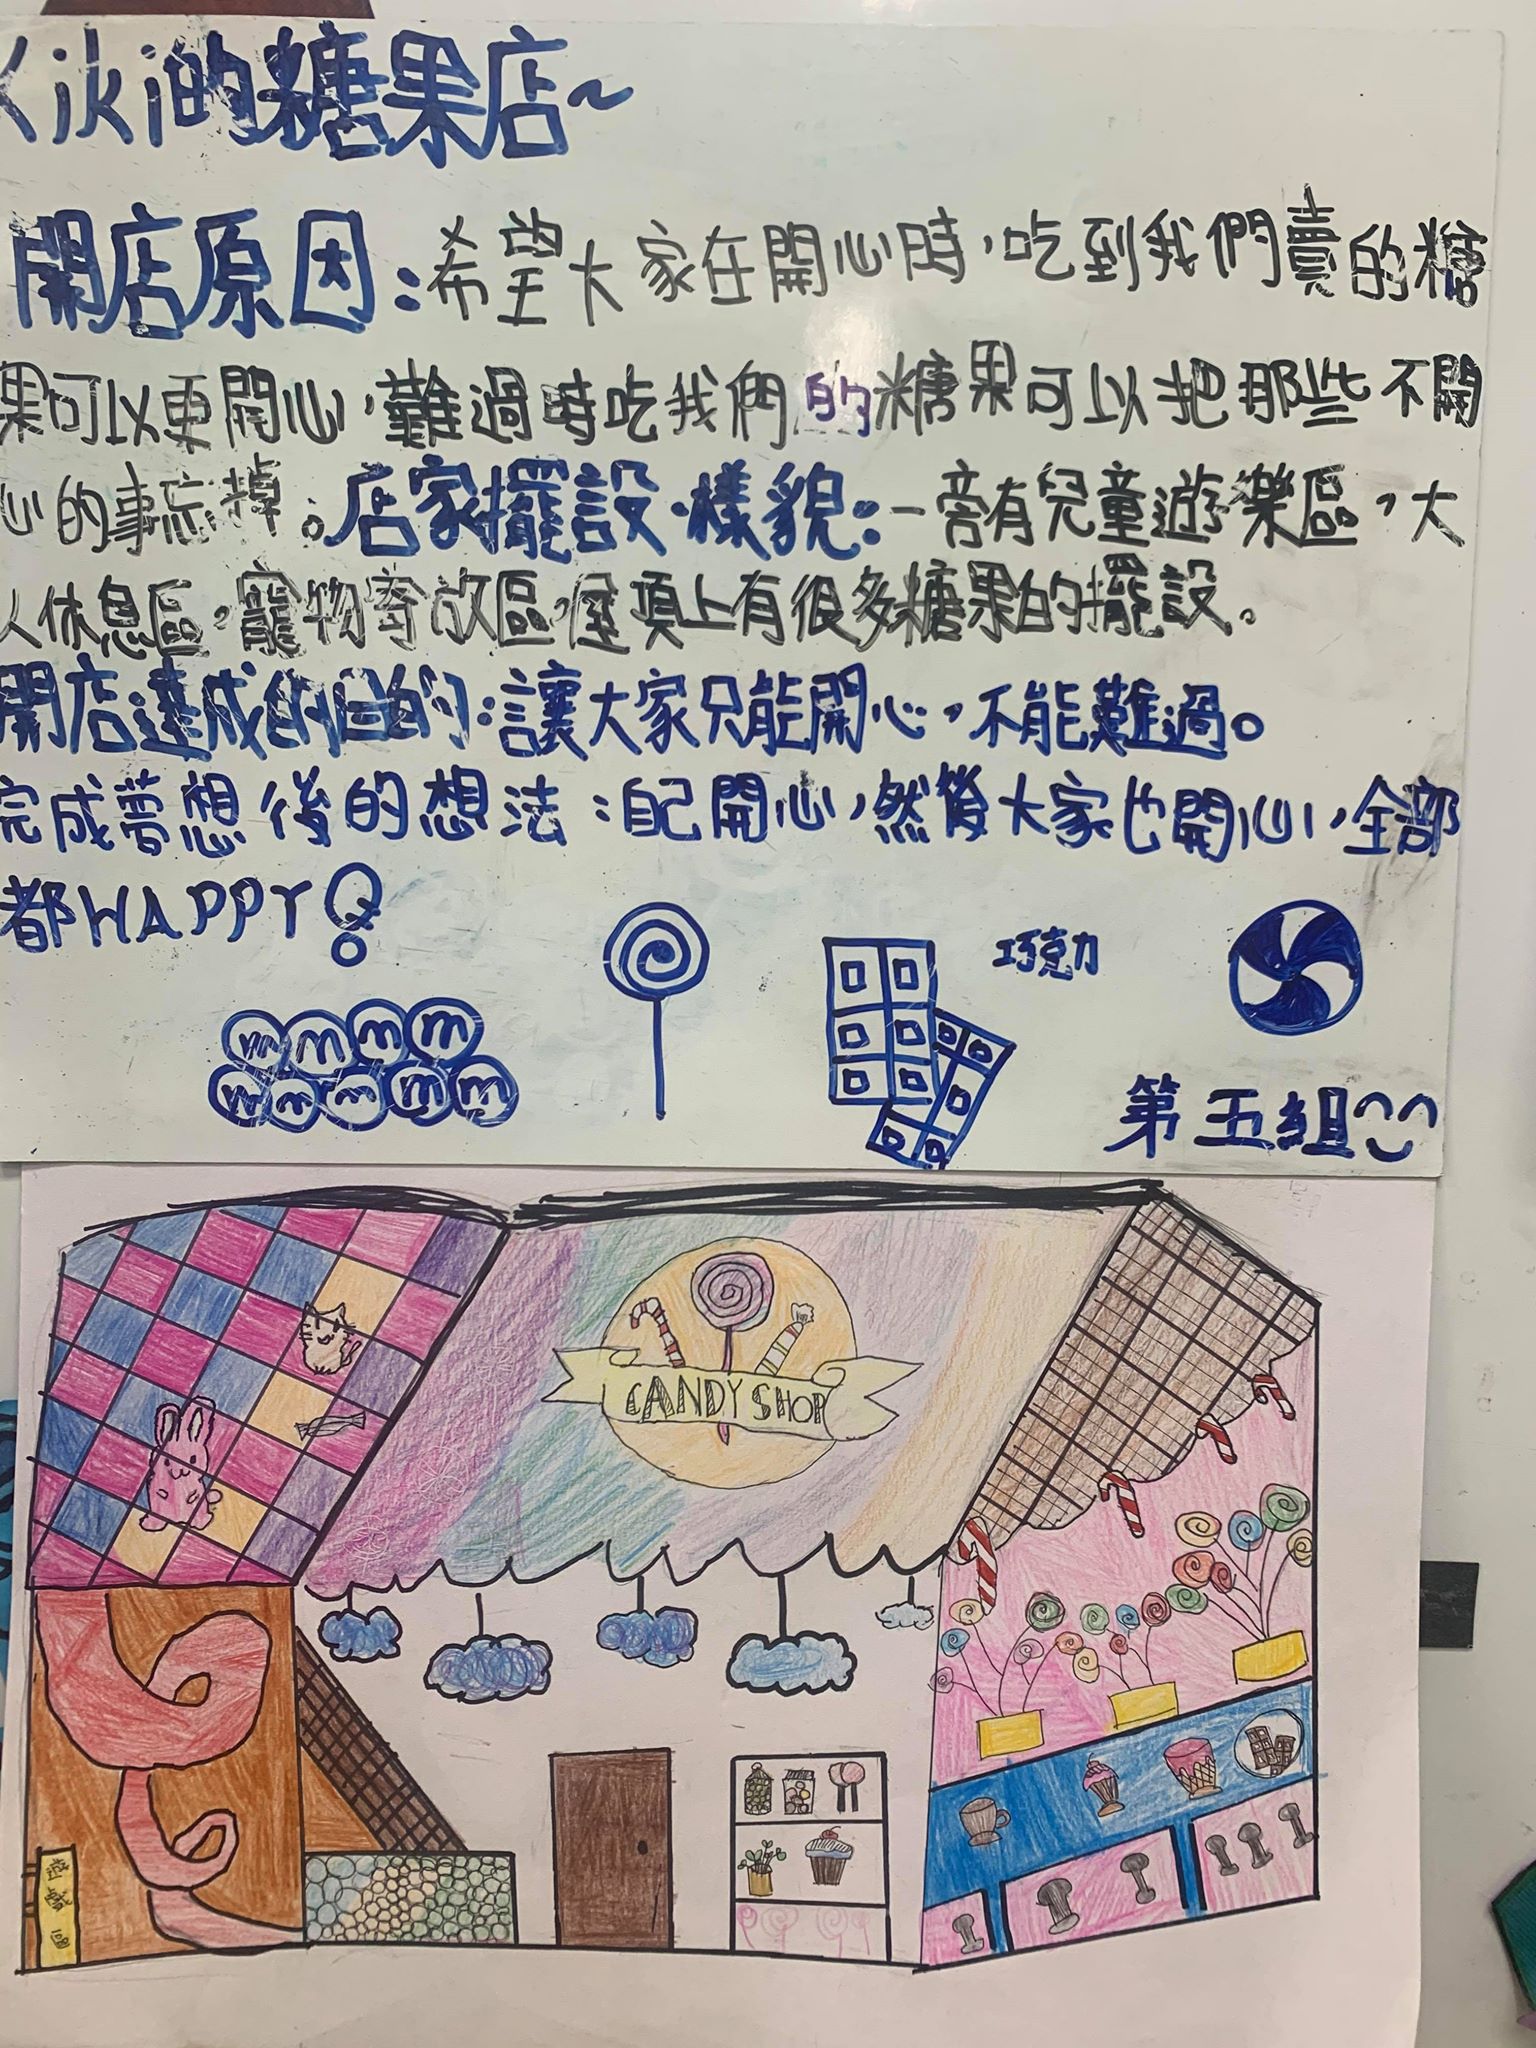 Kiki的糖果店~
開店原因:希望大家在開心時，吃到我們賣的糖
果可以更開心，難過時吃我們的糖果可以把那些不開
心的事忘掉。店家擺設.樣貌:一旁有兒童遊樂區，大
人休息區，寵物寄放區，屋頂上有很多糖果的擺設。
開店達成的目的:讓大家只能開心，不能難過。
完成夢想後的想法:自己開心，然後大家也開心，全部
都HAPPY!
m m m m
m m m m m
巧克力
第五組
CANDY SHOP
遊戲區